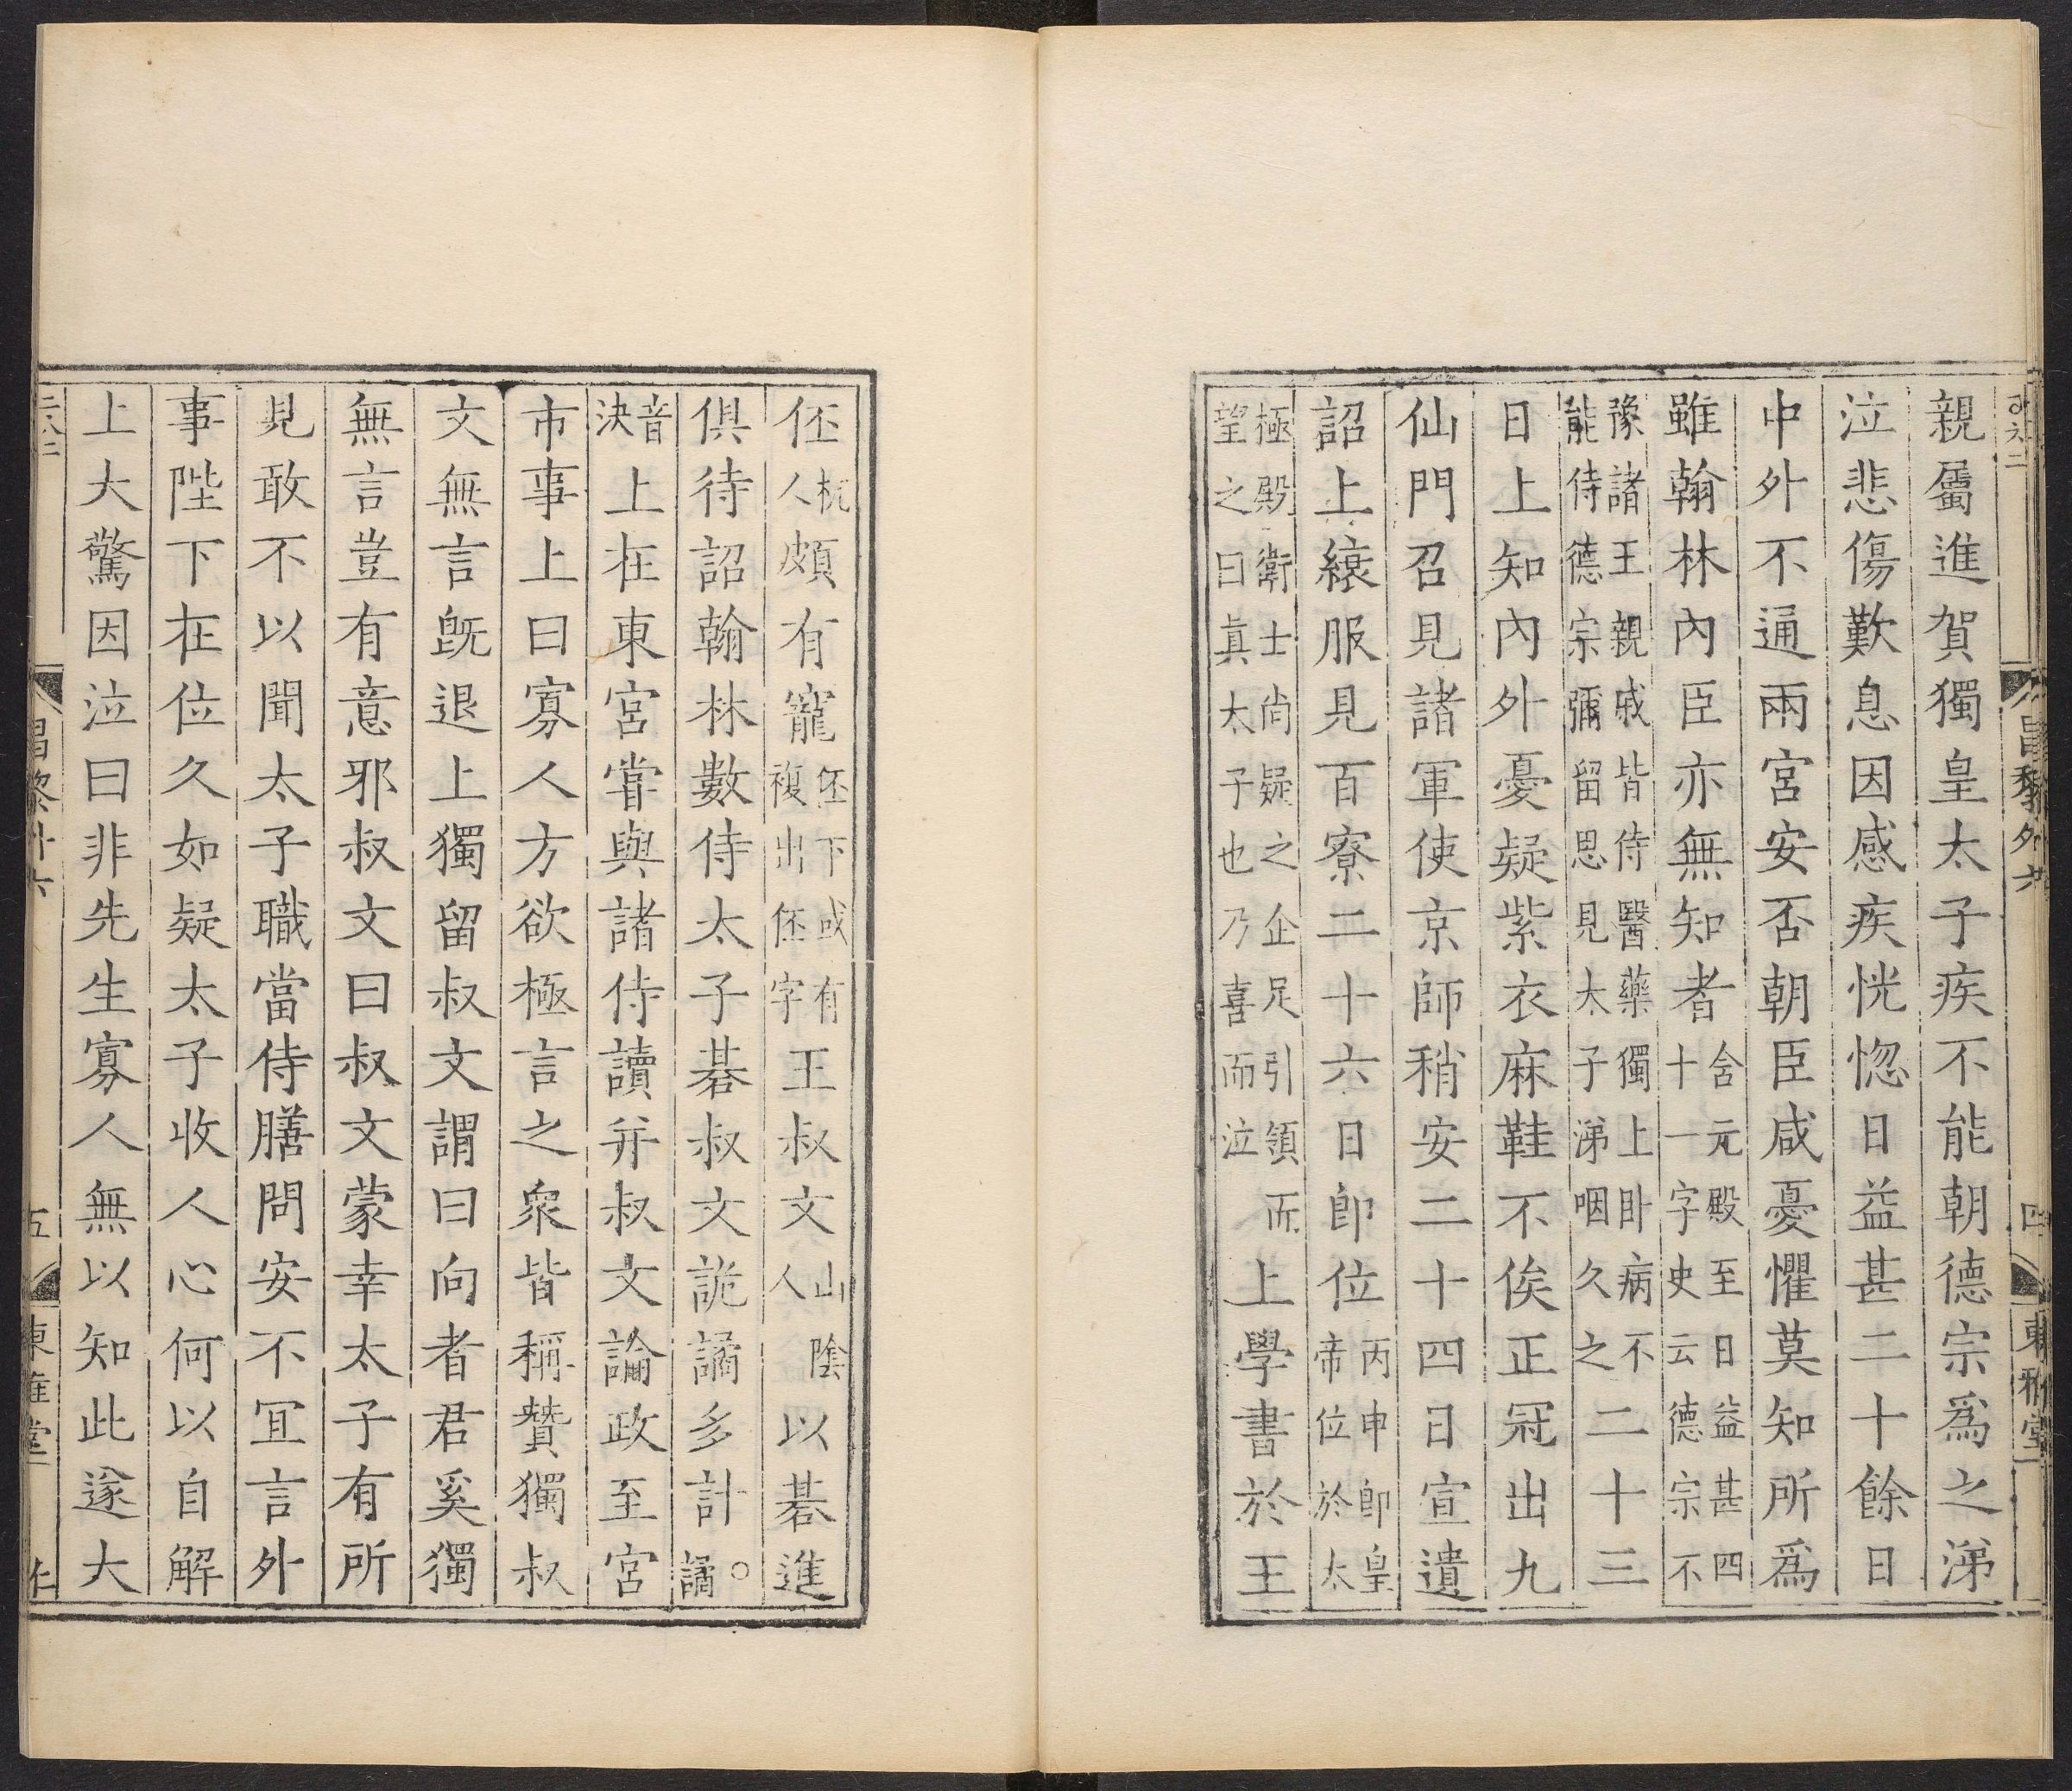 親屬進賀獨皇太子疾不能朝德宗爲之涕
泣悲傷歎息因感疾恍惚日益甚二十餘日
中外不通兩宮安否朝臣咸憂懼莫知所爲
雖翰林內臣亦無知者舍元殿至日益甚四
十一字史云德宗不
豫諸王親戚皆侍醫藥獨上卧病不
能侍德宗彌留思見太子涕咽久之二十三
日上知內外憂疑紫衣麻鞋不俟正冠出九
仙門召見諸軍使京師稍安二十四日宣遺
詔上縗服見百寮二十六日即位丙申即皇
帝位於太
極殿衛士尚疑之企足引領而
望之曰真太子也乃喜而泣上學書於王
伾杭
人頗有寵伾下或有
複出伾字王叔文山陰
人以碁進
俱待詔翰林數侍太子碁叔文詭譎多計○
譎
音
決上在東宮甞與諸侍讀并叔文論政至宮
市事上曰寡人方欲極言之衆皆稱贊獨叔
文無言旣退上獨留叔文謂曰向者君奚獨
無言豈有意邪叔文曰叔文蒙幸太子有所
見敢不以聞太子職當侍膳問安不宜言外
事陛下在位久如疑太子收人心何以自解
上大驚因泣曰非先生寡人無以知此遂大
昌黎外六
四
東雅堂
昌黎外六
五
東雅堂